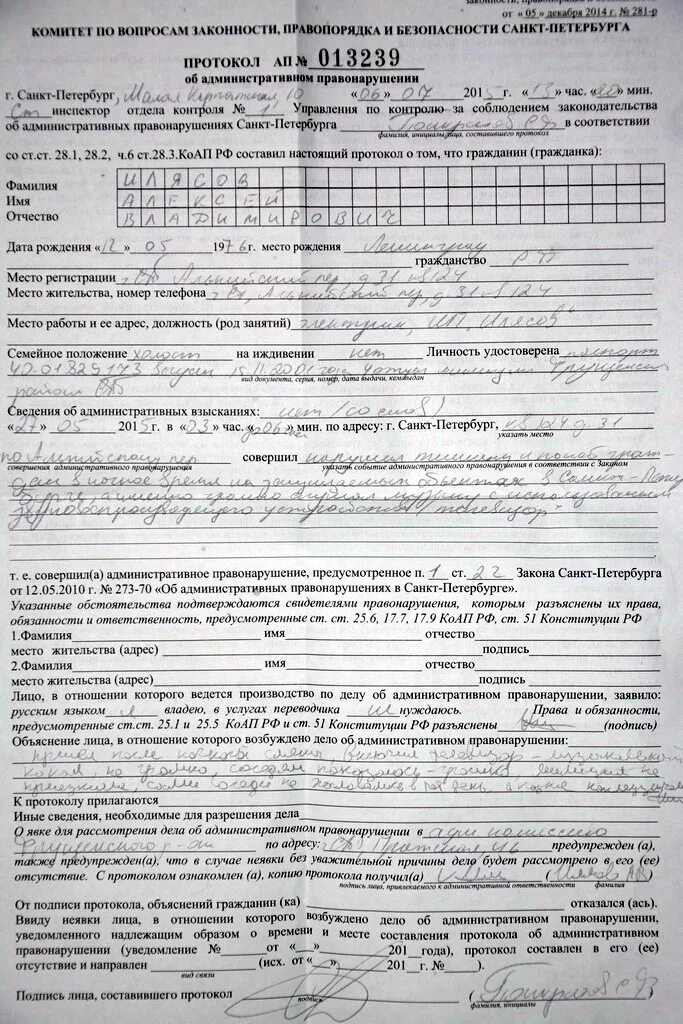 от «05» декабря 2014 г. № 281-р
КОМИТЕТ ПО ВОПРОСАМ ЗАКОННОСТИ, ПРАВОПОРЯДКА И БЕЗОПАСНОСТИ САНКТ-ПЕТЕРБУРГА
ПРОТОКОЛ АП № 013239
об административном правонарушении
г. Санкт-Петербург, Малая «06» 07 2015 г. «13» час. «20» мин.
Ст инспектор отдела контроля № Управления по контролю за соблюдением законодательства
об административных правонарушениях Санкт-Петербурга в соответствии
фамилия, инициалы лица, составившего протокол
со ст.ст. 28.1, 28.2, ч.6 ст.28.3.КоАП РФ составил настоящий протокол о том, что гражданин (гражданка):
Фамилия ИЛЯСОВ
Имя АЛЕКСЕЙ
Отчество ВЛАДИМИРОВИЧ
Дата рождения «12» 05 1976 г. место рождения Ленинград
гражданство РФ
Место регистрации Альпийский пер, д 31 кв 124
Место жительства, номер телефона Альпийский пер, д 31 кв 124
Место работы и ее адрес, должность (род занятий) электрик, ИП "Илясов"
Семейное положение холост на иждивении нет Личность удостоверена паспорт
вид документа, серия, номер, дата выдачи, кем выдан
район
Сведения об административных взысканиях: нет (со слов)
«27» 05 2015 г. в «03» час. «06» мин. по адресу: г. Санкт-Петербург, кв 124 д 31
указать место
по Альпийскому пер совершил нарушил тишину и покой граж-
совершения административного правонарушения указать событие административного правонарушения в соответствии с Законом
дан в ночное время на защищаемых объектах в Санкт-Петер
бурге, а именно громко слушал музыку с использованием
звуковоспроизводящего устройства "телевизор"
т. е. совершил(а) административное правонарушение, предусмотренное п. 1 ст. 22 Закона Санкт-Петербурга
от 12.05.2010 г. № 273-70 «Об административных правонарушениях в Санкт-Петербурге».
Указанные обстоятельства подтверждаются свидетелями правонарушения, которым разъяснены их права,
обязанности и ответственность, предусмотренные ст. ст. 25.6, 17.7, 17.9 КоАП РФ, ст. 51 Конституции РФ
1.Фамилия имя отчество
место жительства (адрес) подпись
2.Фамилия имя отчество
место жительства (адрес) подпись
Лицо, в отношении которого ведется производство по делу об административном правонарушении, заявило:
русским языком я владею, в услугах переводчика не нуждаюсь. Права и обязанности,
предусмотренные ст.ст. 25.1 и 25.5 КоАП РФ и ст. 51 Конституции РФ разъяснены (подпись)
Объяснение лица, в отношении которого возбуждено дело об административном правонарушении:
пришел после ночной смены включил телевизор - музыкальный
канал, не громко, соседям показалось - громко, милиция не
приезжала, сами соседи не жаловались в тот день
К протоколу прилагаются
Иные сведения, необходимые для разрешения дела
О явке для рассмотрения дела об административном правонарушении в адм комиссию
Фрунзенского р-на по адресу: Пражская, 46 предупрежден (а),
также предупрежден(а), что в случае неявки без уважительной причины дело будет рассмотрено в его (ее)
отсутствие. С протоколом ознакомлен (а), копию протокола получил(а) (Илясов АВ)
подпись лица, привлекаемого к административной ответственности фамилия
От подписи протокола, объяснений гражданин (ка) отказался (ась).
Ввиду неявки лица, в отношении которого возбуждено дело об административном правонарушении,
уведомленного надлежащим образом о времени и месте составления протокола об административном
правонарушении (уведомление № от «__» 201 года), протокол составлен в его (ее)
отсутствие и направлен (исх. от «__» 201 г. № ).
вид связи
Подпись лица, составившего протокол
подпись фамилия, инициалы